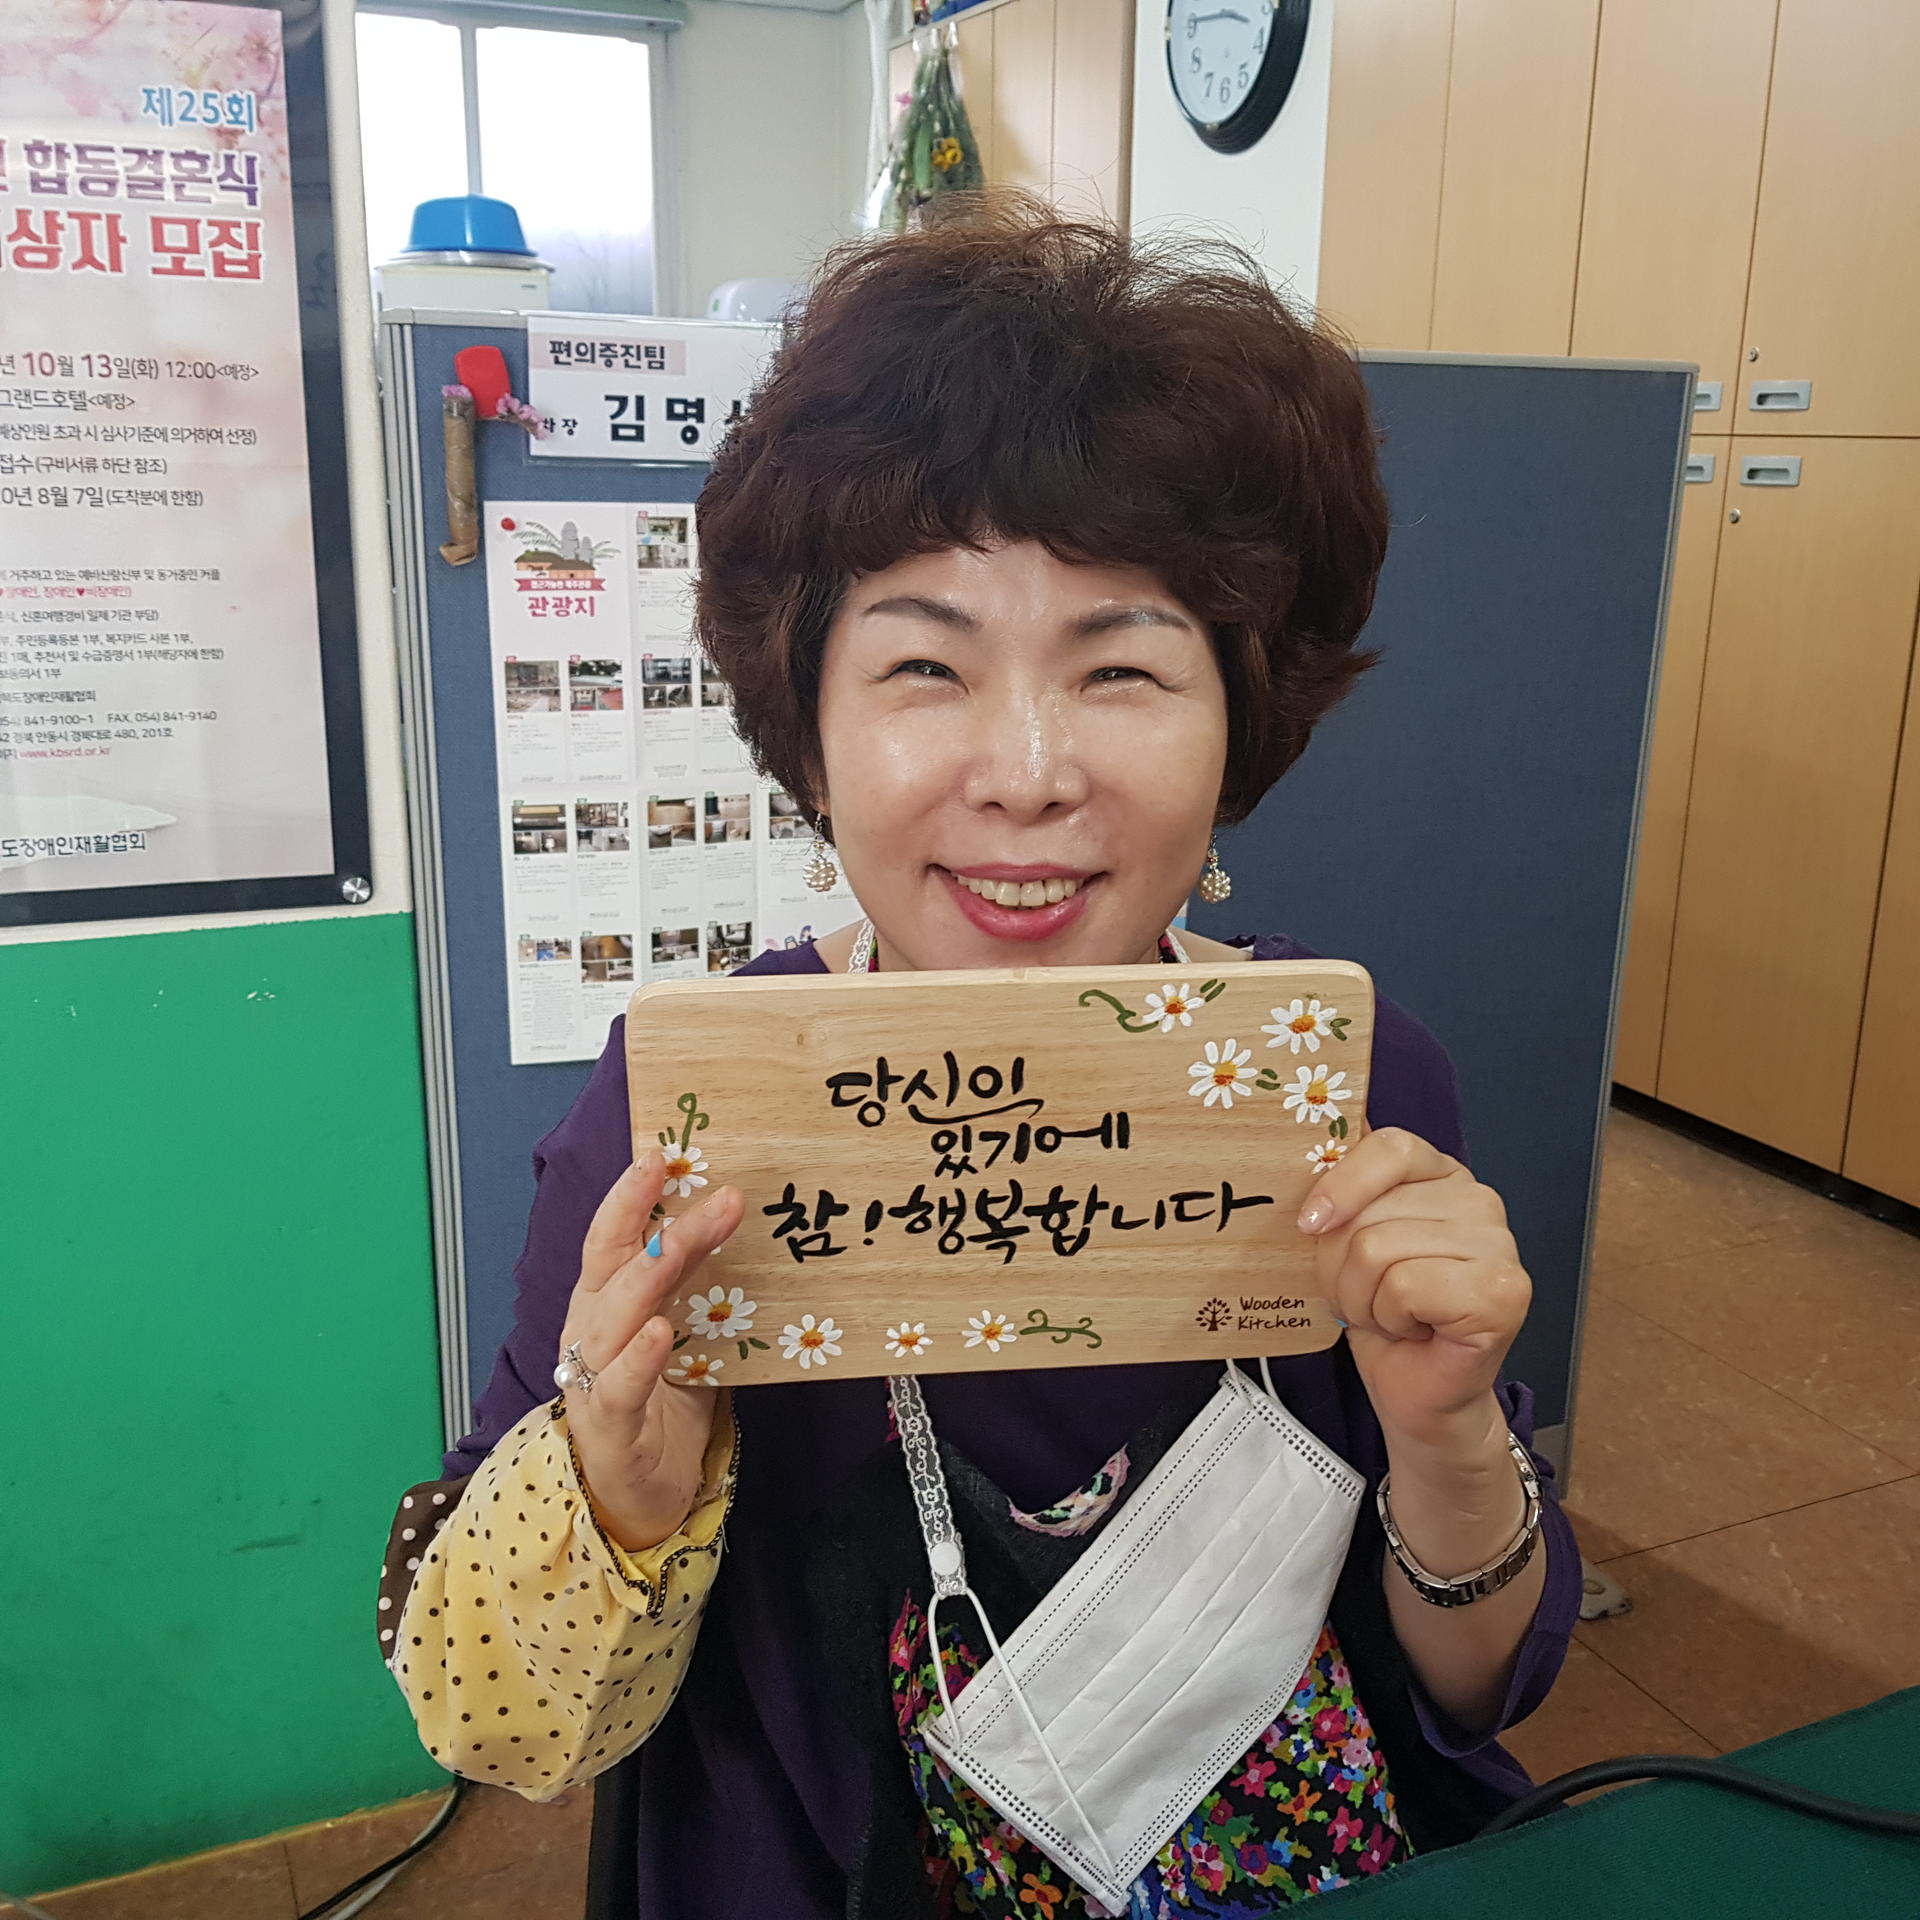 제25회
합동결혼식
상자 모집
년 10월 13일(화) 12:00<예정>
그랜드호텔<예정>
예상인원 초과 시 심사기준에 의거하여 선정)
접수(구비서류 하단 참조)
0년 8월 7일(도착분에 한함)
거주하고 있는 예비신랑신부 및 동거중인 커플
장애인, 장애인♥비장애인)
식, 신혼여행경비 일체 기관 부담)
부, 주민등록등본 1부, 복지카드 사본 1부,
1매, 추천서 및 수급증명서 1부(해당자에 한함)
보동의서 1부
북도장애인재활협회
054) 841-9100~1 FAX. 054) 841-9140
42 경북 안동시 경북대로 480, 201호
이지 www.kbsrd.or.kr
도장애인재활협회
편의증진팀
차장 김명
관광지
9 4
8 5
7 6
당신이
있기에
참! 행복합니다
Wooden
Kitchen